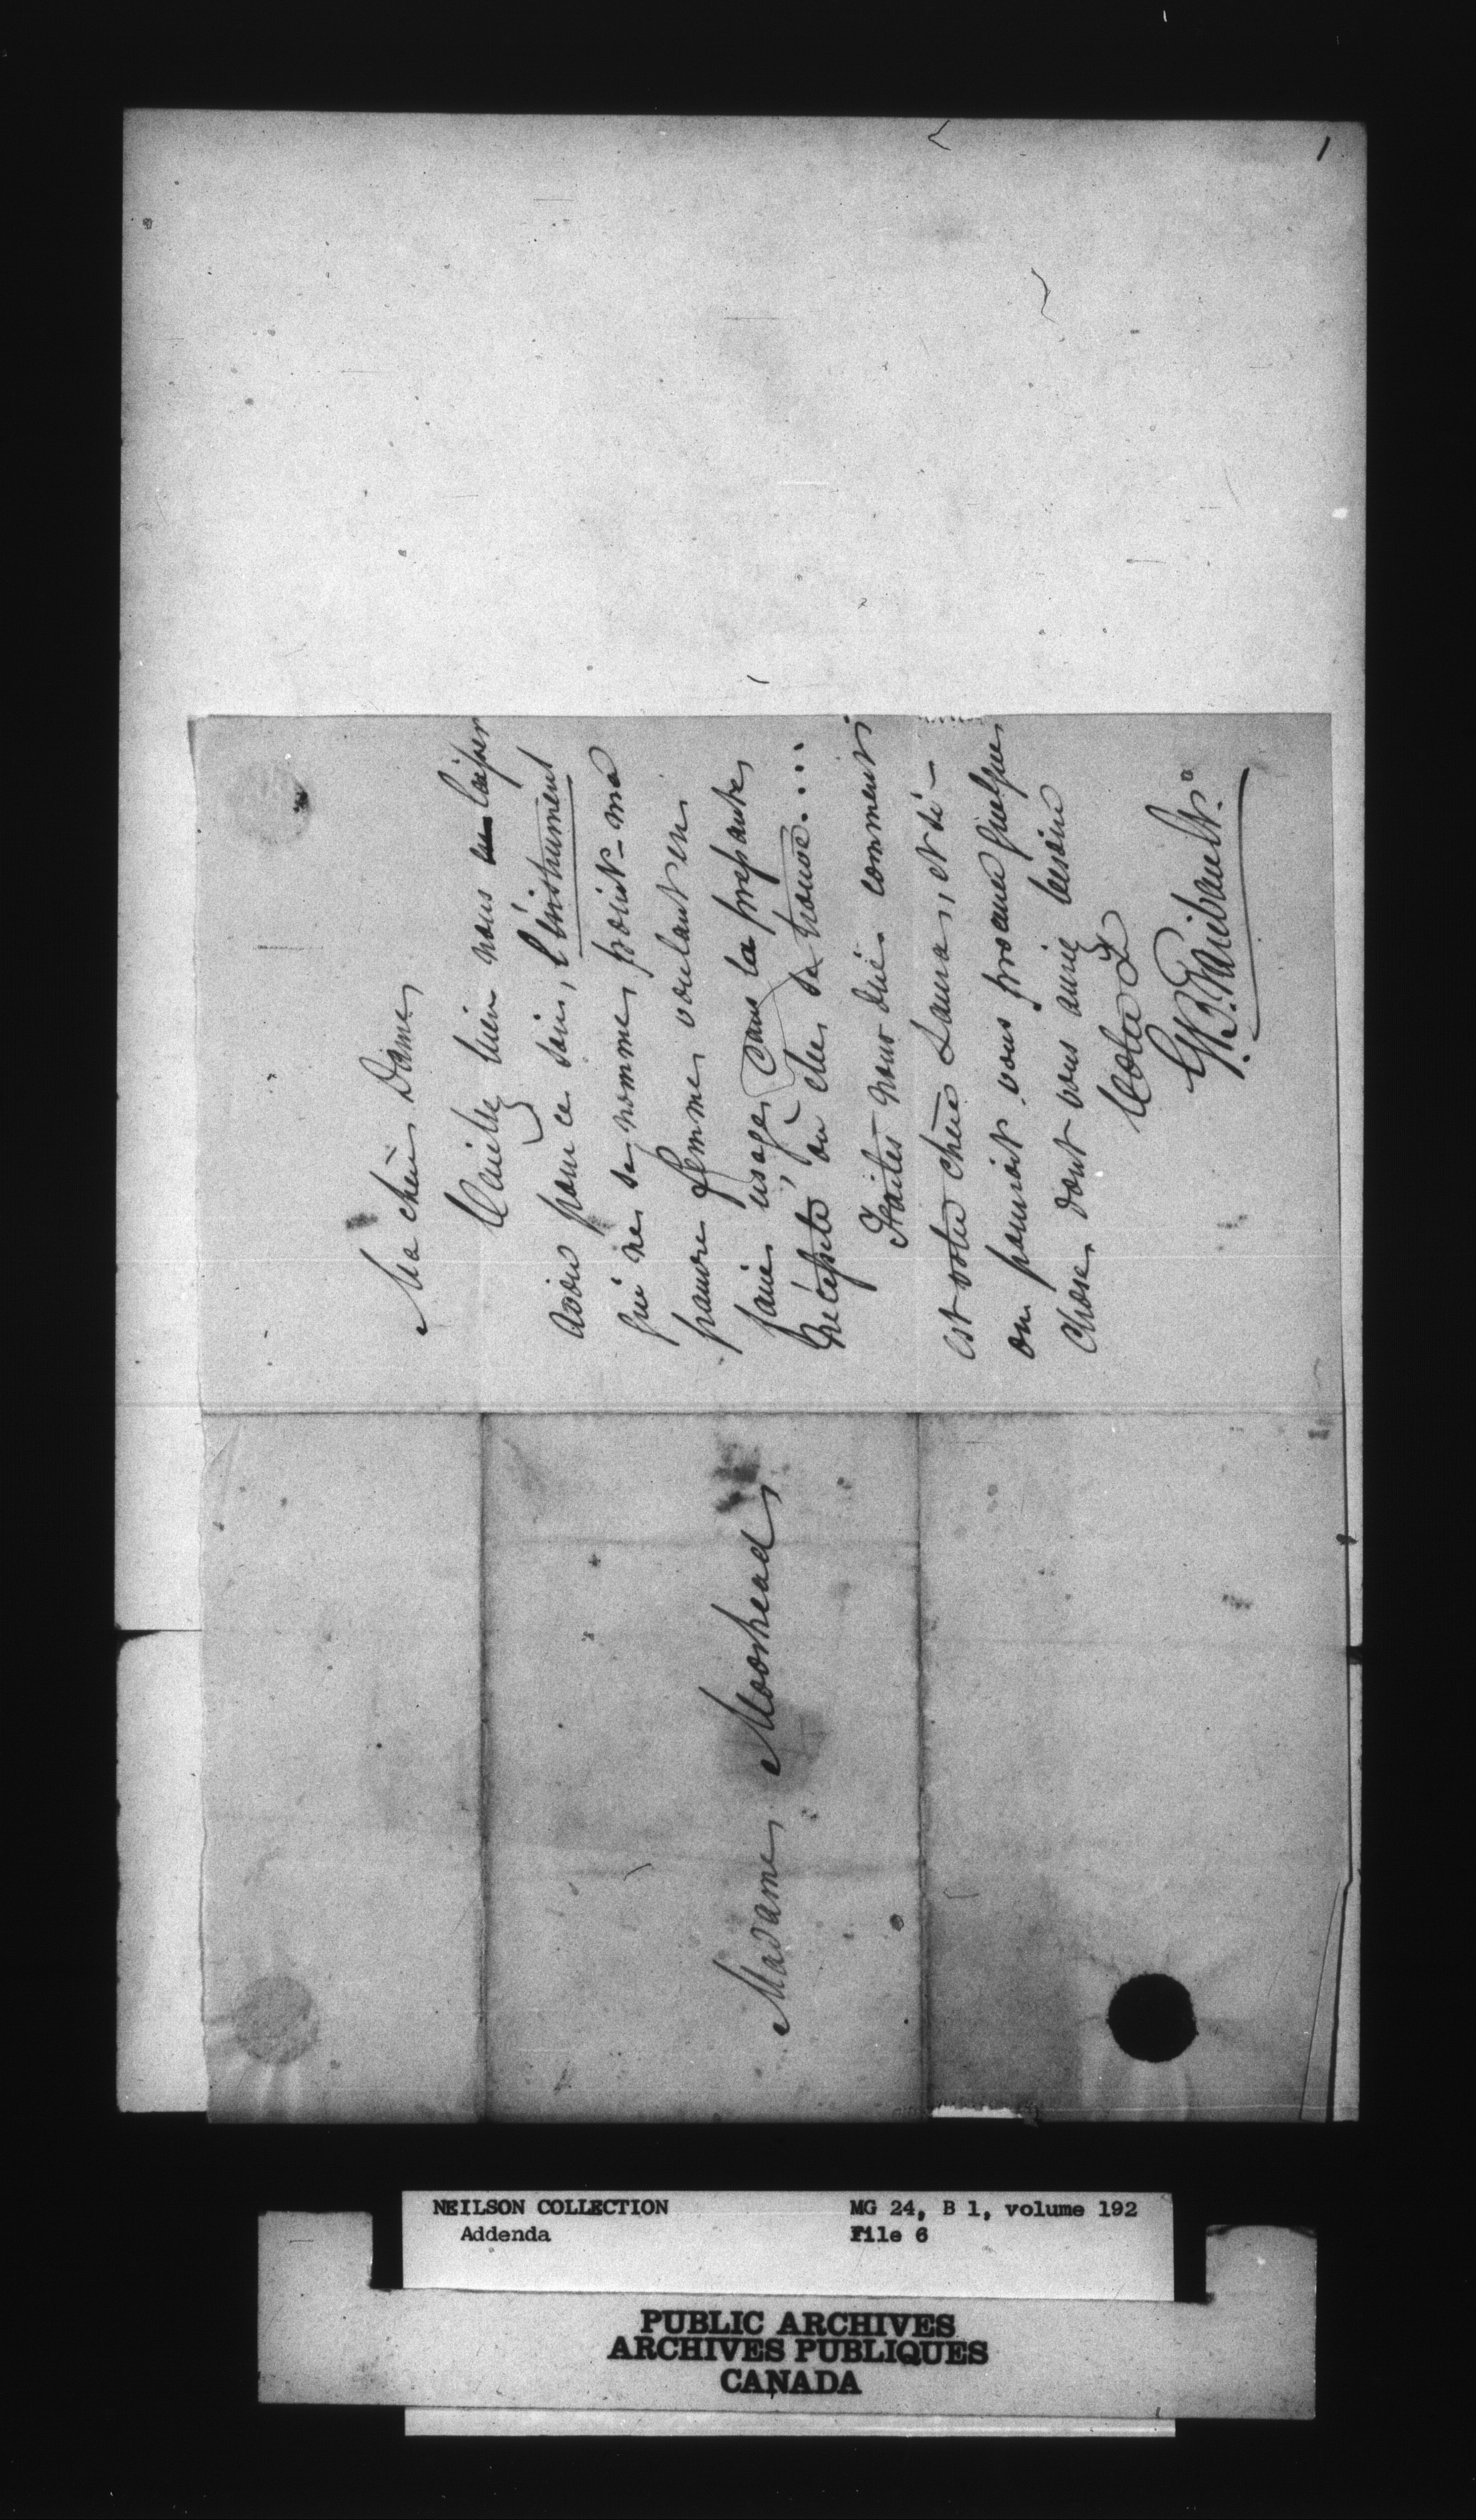 1
Ma chère Dame
Veuillez bien nous en laisser
avoir pour ce soir, l'instrument
qui ne se nomme point - ma
pauvre femme voulant en
faire usage, dans la pressante
nécessité où elle se trouve....
Faites nous dire comment
est votre chère Laura, et si -
on pourroit vous procurer quelque
chose dont vous auriez besoin
Votre &
G. B. Faribault.
Madame Moorhead
NEILSON COLLECTION MG 24, B 1, volume 192
Addenda File 6
PUBLIC ARCHIVES
ARCHIVES PUBLIQUES
CANADA